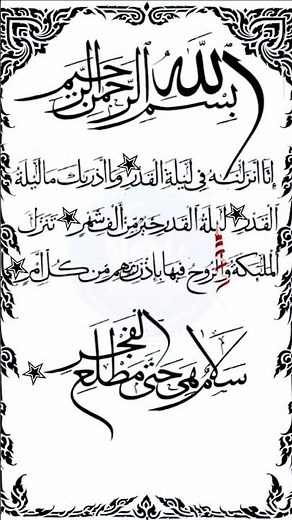 بسم الله الرحمن الرحيم
إنا أنزلناه في ليلة القدر وما أدريك ما ليلة
القدر ليلة القدر خير من ألف شهر تنزل
الملئكة والروح فيها بإذن ربهم من كل أمر
سلام هي حتى مطلع الفجر